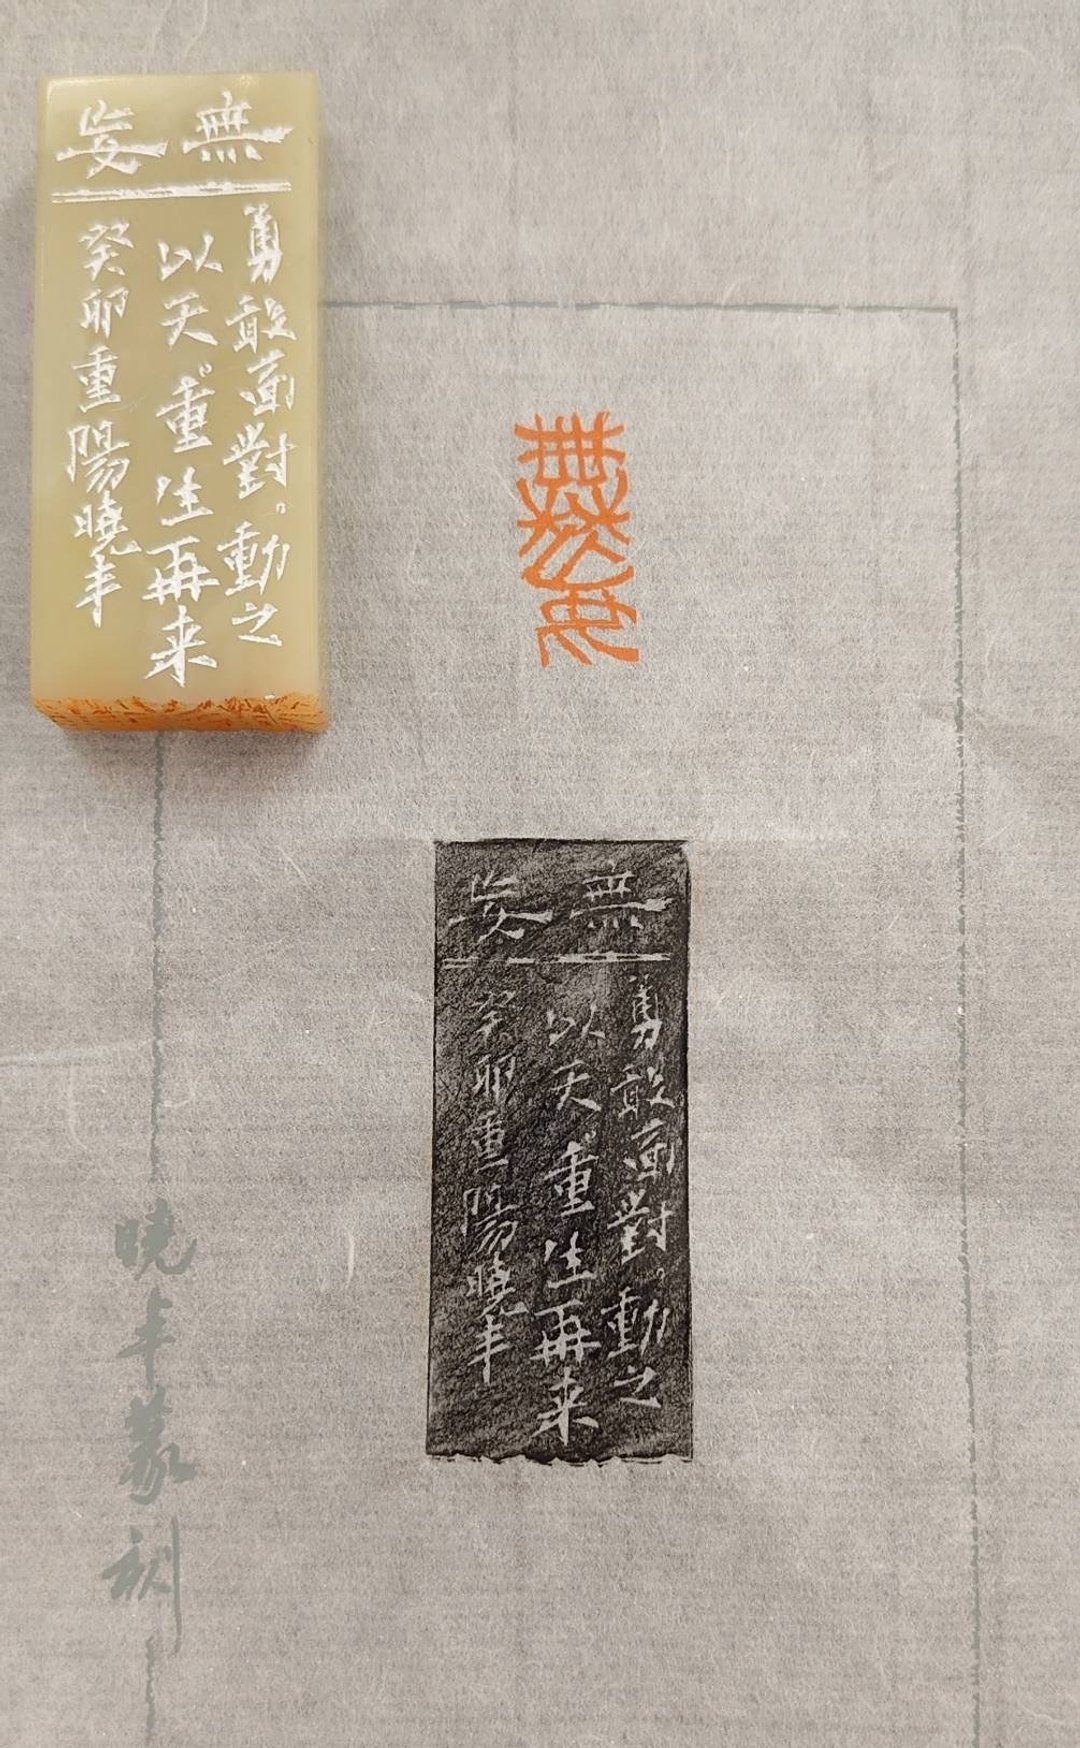 無妄
勇敢面對。動之
以天。重生再来
癸卯重陽曉丰
無妄
無妄
勇敢面對。動之
以天。重生再来
癸卯重陽曉丰
曉丰篆刻